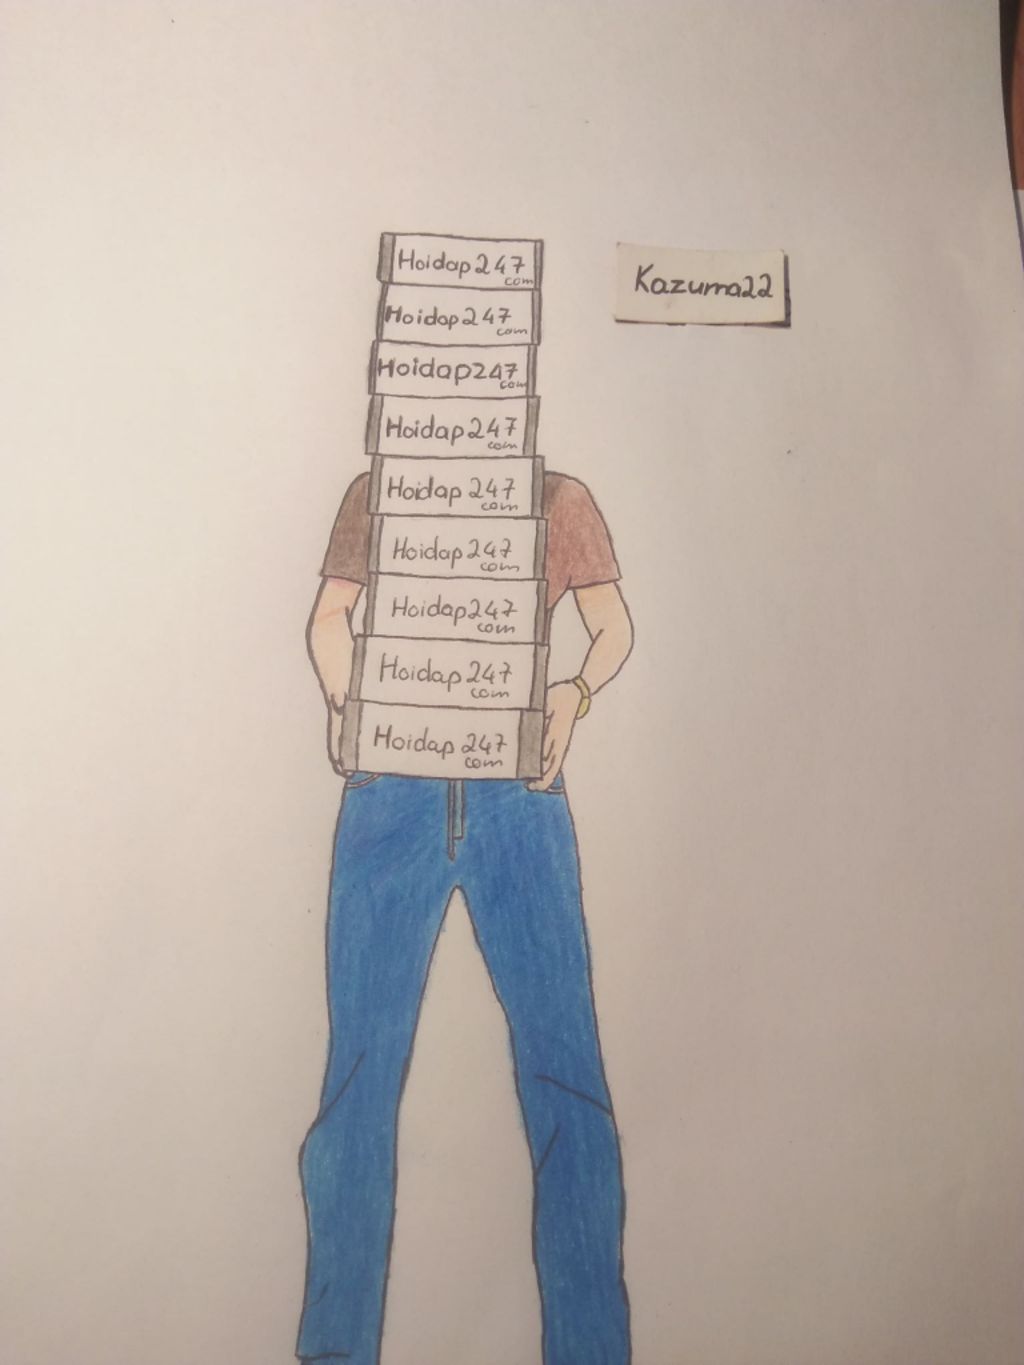 Hoidap247
com
Kazuma22
Hoidap247
com
Hoidap247
com
Hoidap247
com
Hoidap 247
com
Hoidap247
com
Hoidap247
com
Hoidap 247
com
Hoidap 247
com